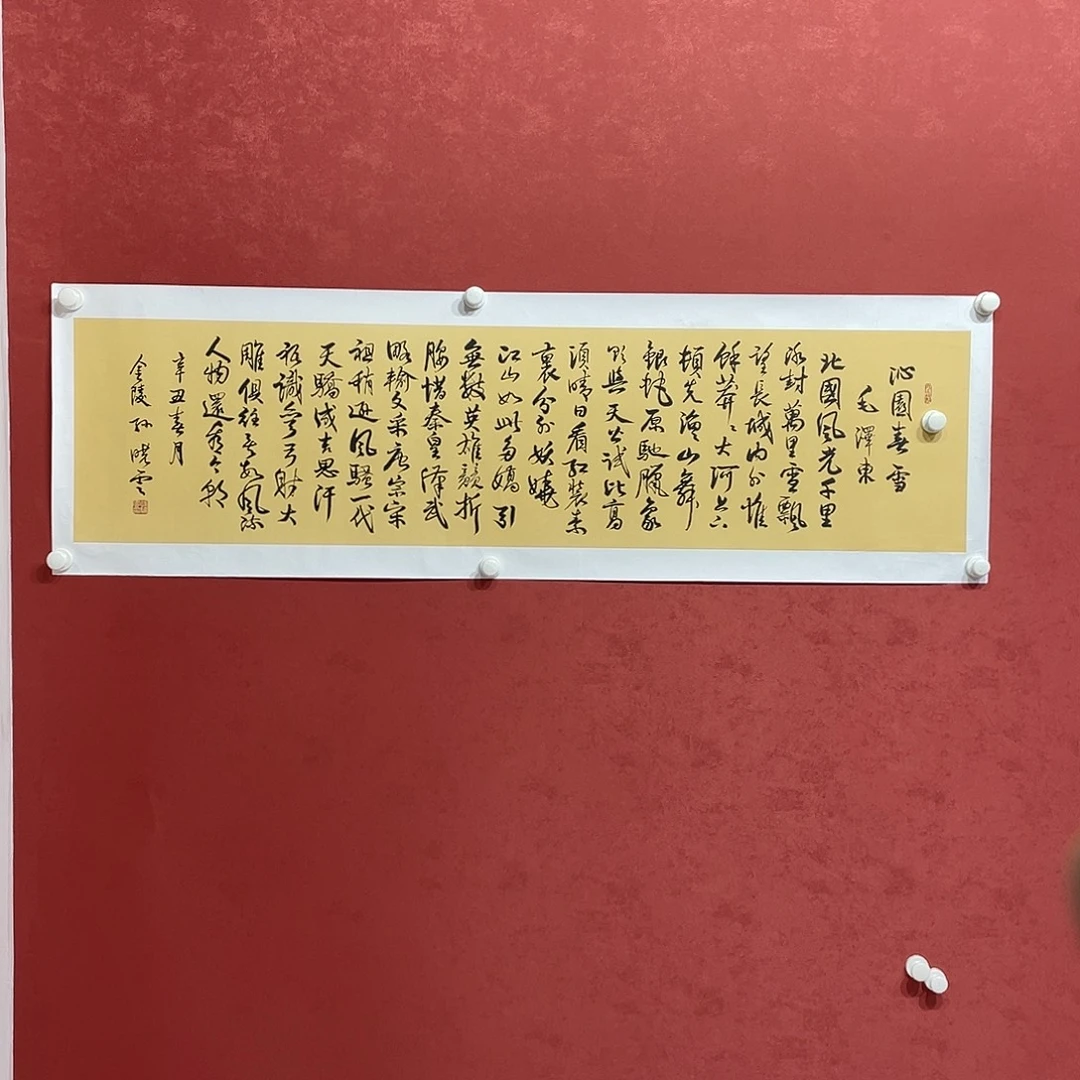 沁園春雪
毛澤東
北國風光千里
冰封萬里雪飄
望長城内外惟
餘莽〻大河上下
頓失滔山舞
銀蛇原馳臘象
欲與天公試比高
須晴日看紅裝素
裹分外妖嬈
江山如此多嬌引
無數英雄競折
腰惜秦皇漢武
略輸文采唐宗宋
祖稍遜風騷一代
天驕成吉思汗
祇識彎弓射大
雕俱往矣數風流
人物還看今朝
辛丑春月
金陵孫曉雲